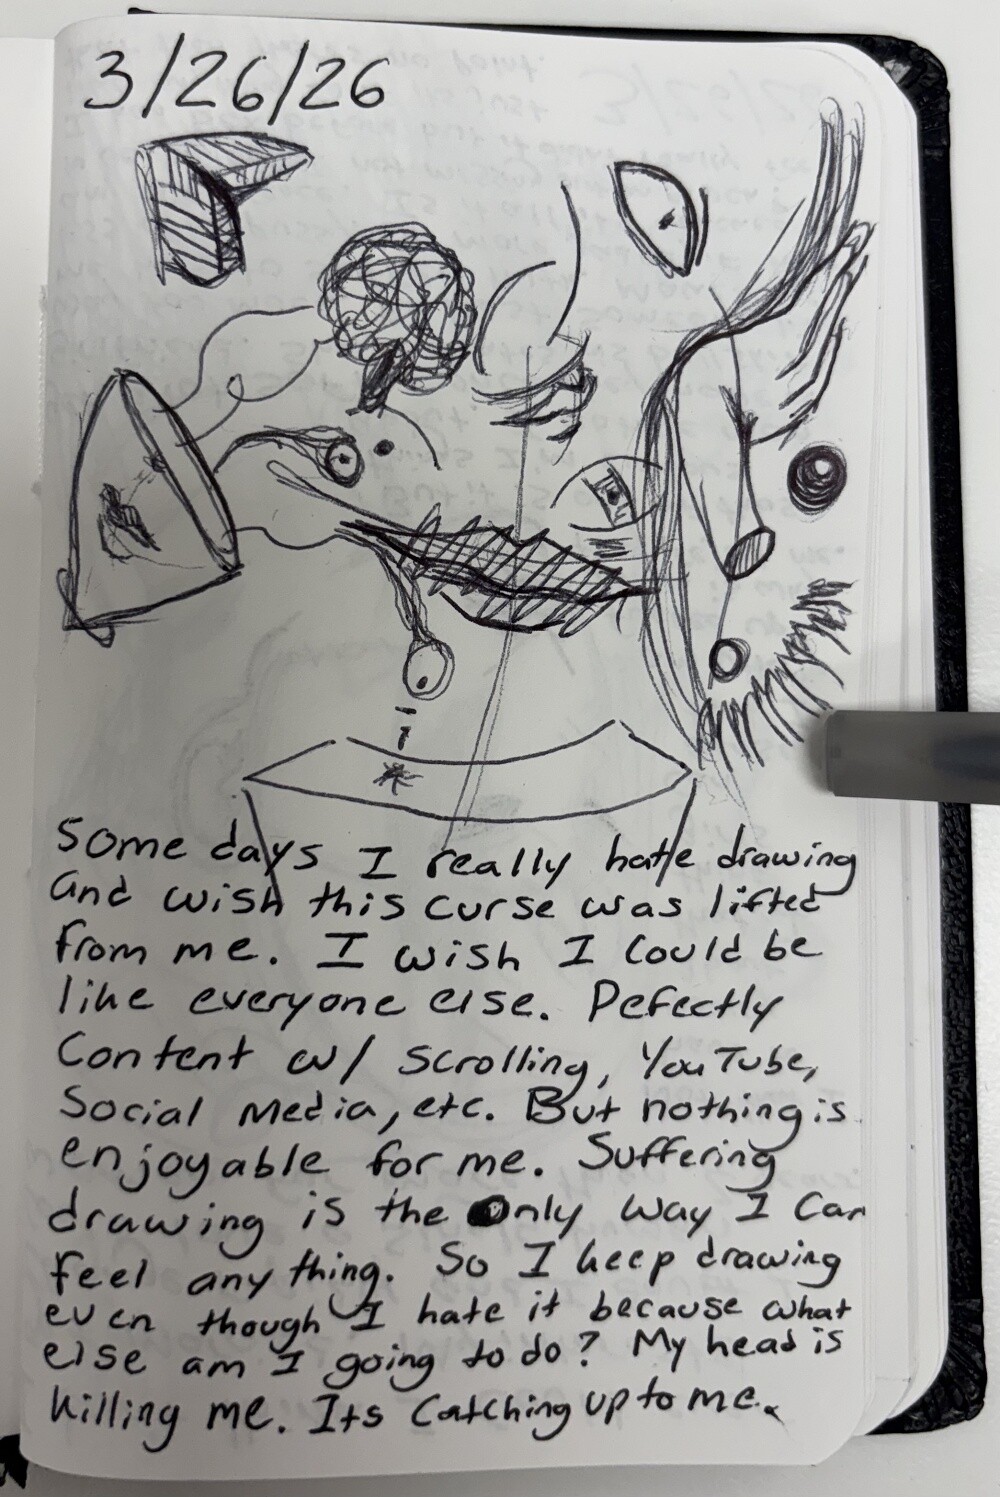 3/26/26
Some days I really hate drawing
and wish this curse was lifted
from me. I wish I could be
like everyone else. Pefectly
Content w/ scrolling, YouTube,
Social Media, etc. But nothing is
enjoyable for me. Suffering
drawing is the only way I can
feel any thing. So I keep drawing
even though I hate it because what
else am I going to do? My head is
killing me. Its catching up to me.